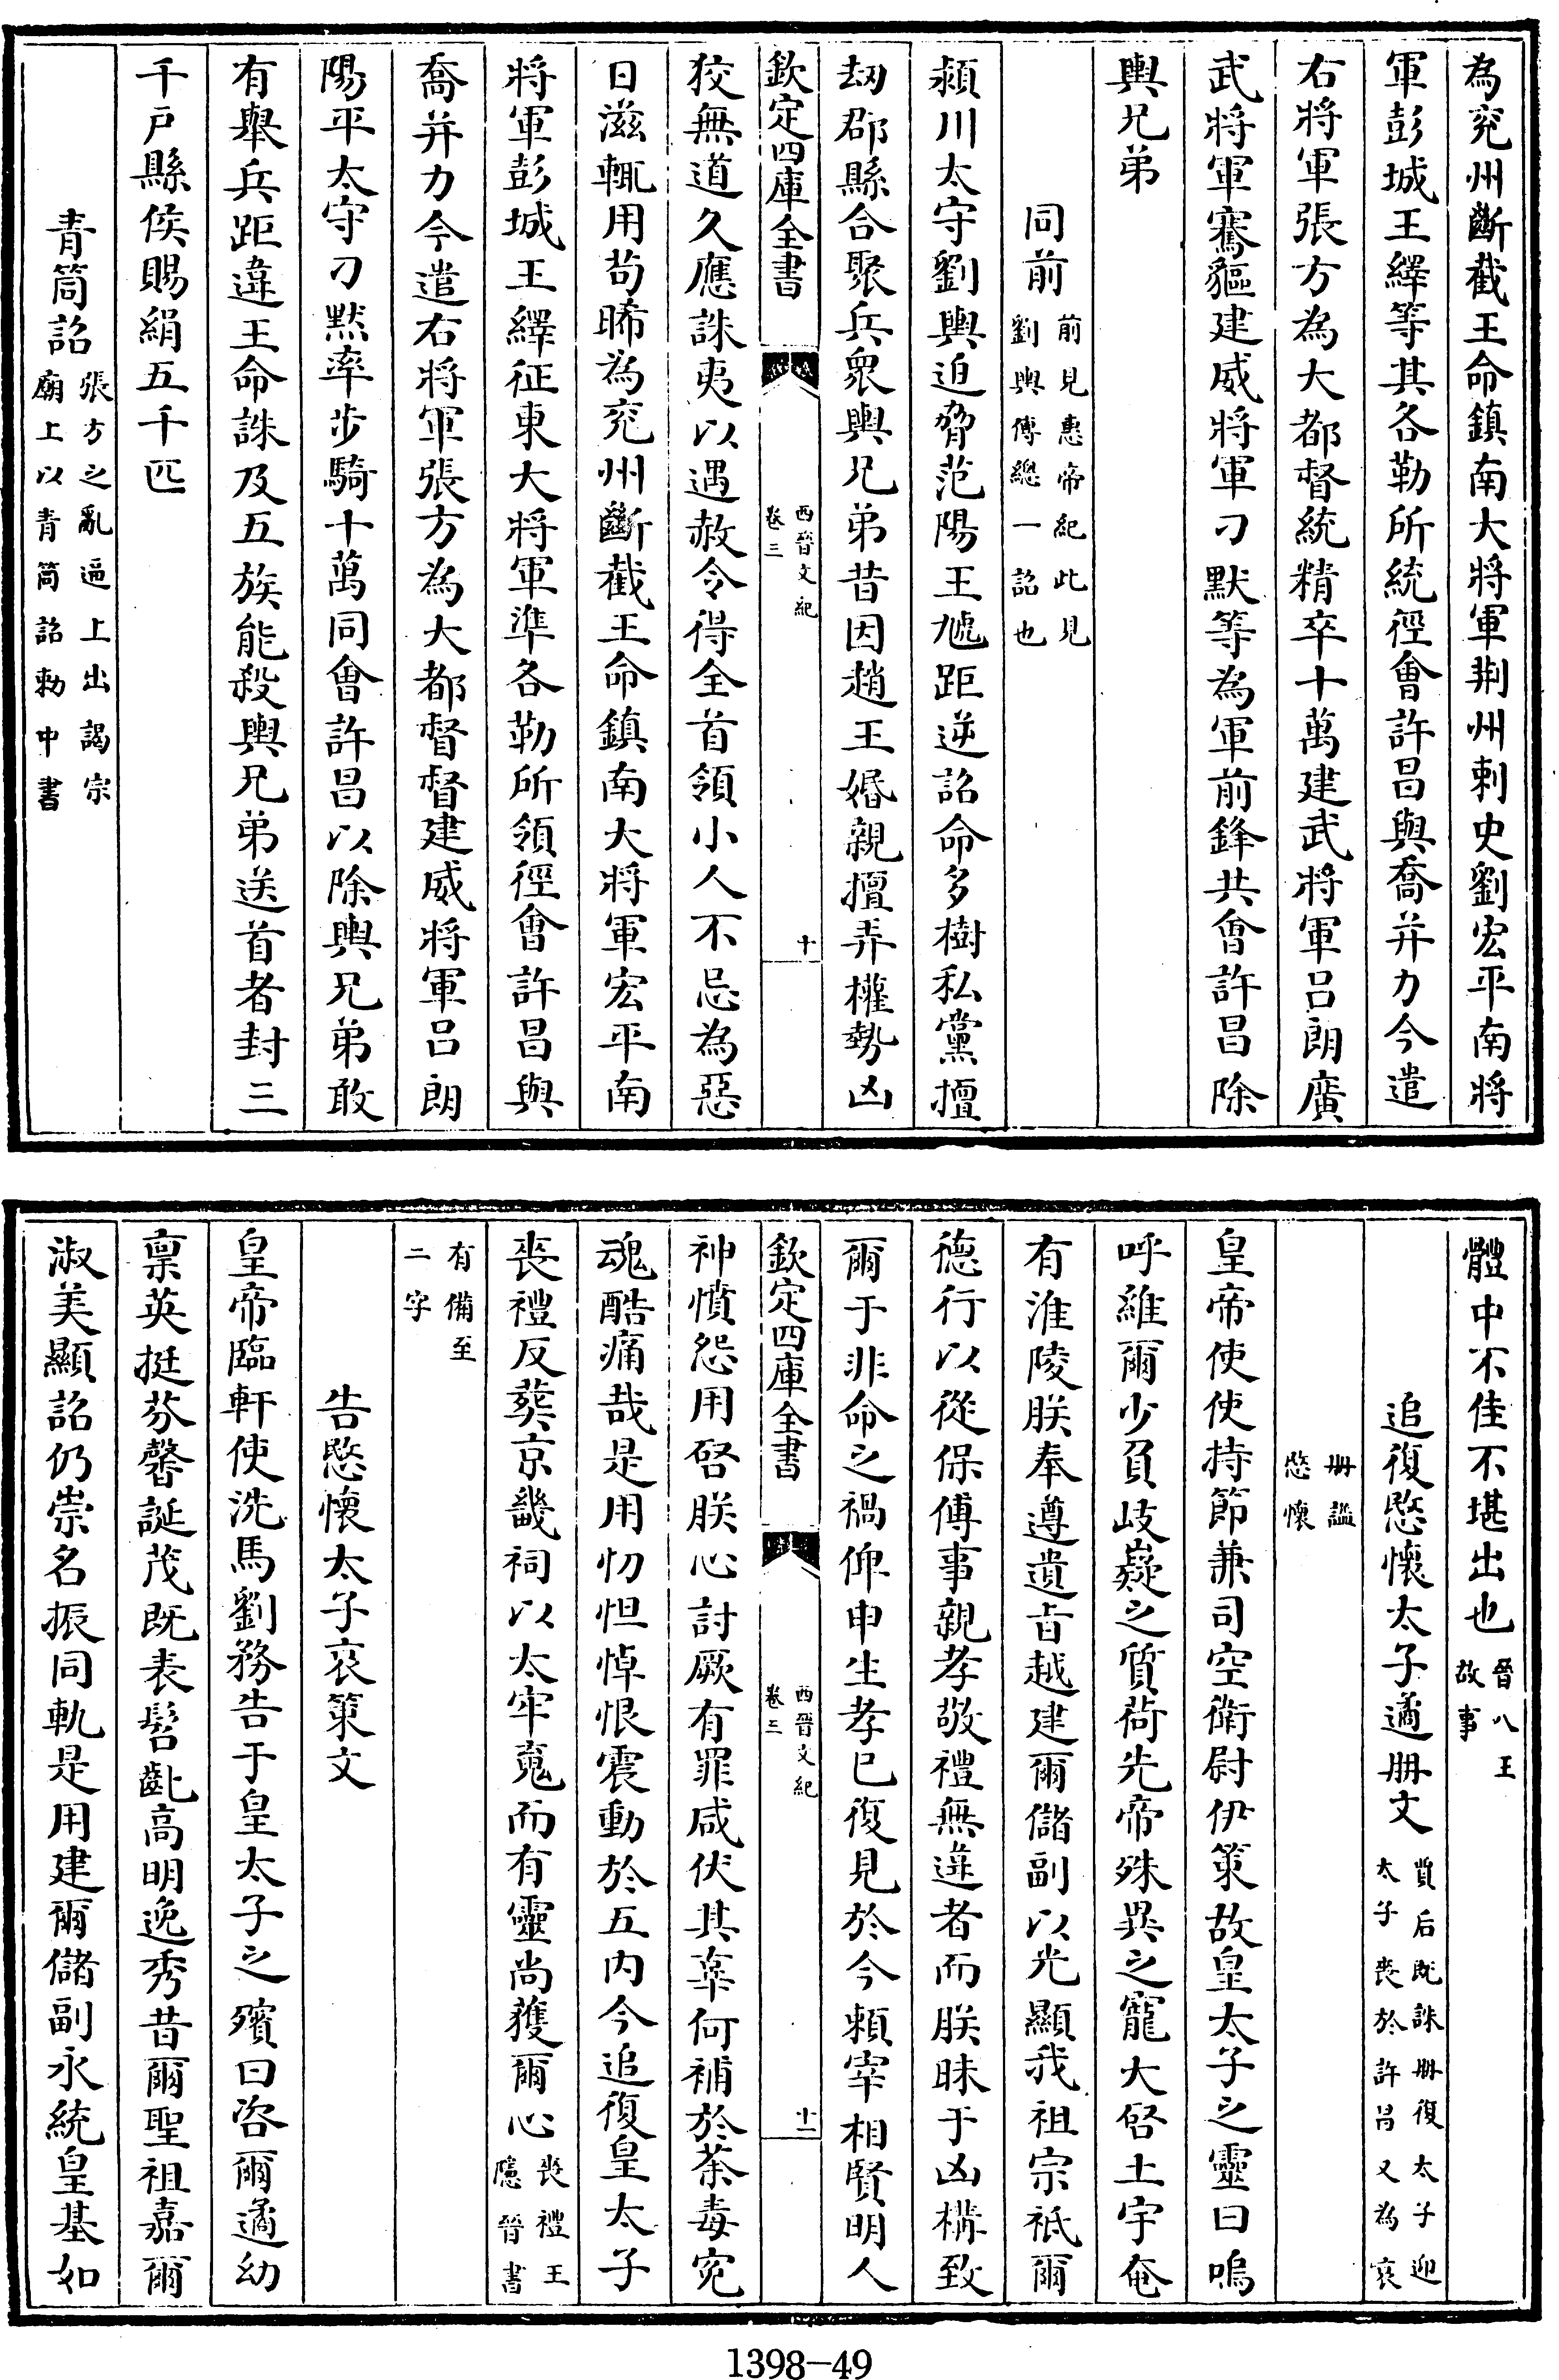 為兖州斷截王命鎮南大將軍荆州刺史劉宏平南將
軍彭城王繹等其各勒所統徑會許昌與喬并力今遣
右將軍張方為大都督統精卒十萬建武將軍吕朗廣
武將軍騫貙建威將軍刁默等為軍前鋒共會許昌除
輿兄弟
同前前見惠帝紀此見
劉輿傳總一詔也
潁川太守劉輿迫脅范陽王虓距逆詔命多樹私黨擅
刼郡縣合聚兵衆輿兄弟昔因趙王婚親擅弄權勢凶
欽定四庫全書
西晉文紀
卷三
十
狡無道久應誅夷以遇赦令得全首領小人不忌為惡
日滋輒用苟晞為兖州斷截王命鎮南大將軍宏平南
將軍彭城王繹征東大將軍準各勒所領徑會許昌與
喬并力今遣右將軍張方為大都督督建威將軍吕朗
陽平太守刁黙率步騎十萬同會許昌以除輿兄弟敢
有舉兵距違王命誅及五族能殺輿兄弟送首者封三
千戸縣侯賜絹五千匹
青筒詔張方之亂逼上出謁宗
廟上以青筒詔勅中書
體中不佳不堪出也晉八王
故事
追復愍懷太子遹册文賈后既誅册復太子迎
太子喪於許昌又為哀
册諡
愍懷
皇帝使使持節兼司空衛尉伊策故皇太子之靈曰嗚
呼維爾少負岐嶷之質荷先帝殊異之寵大啓土宇奄
有淮陵朕奉遵遺旨越建爾儲副以光顯我祖宗祗爾
德行以從保傅事親孝敬禮無違者而朕昧于凶構致
爾于非命之禍俾申生孝已復見於今賴宰相賢明人
欽定四庫全書
西晉文紀
卷三
十一
神憤怨用啓朕心討厥有罪咸伏其辜何補於荼毒寃
魂酷痛哉是用忉怛悼恨震動於五内今追復皇太子
喪禮反葬京畿祠以太牢䰟而有靈尚獲爾心喪禮王
隱晉書
有備至
二字
告愍懷太子哀策文
皇帝臨軒使洗馬劉務告于皇太子之殯曰咨爾遹幼
禀英挺芬馨誕茂既表髫齔高明逸秀昔爾聖祖嘉爾
淑美顯詔仍崇名振同軌是用建爾儲副永統皇基如
1398-49